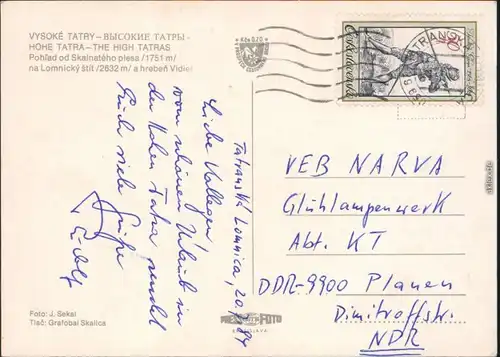 VYSOKÉ TATRY - ВЫСОКИЕ ТАТРЫ -
HOHE TATRA - THE HIGH TATRAS
Pohľad od Skalnatého plesa /1751 m/
na Lomnický štít /2632 m/ a hrebeň Vidlíc
Tatranská Lomnica, 20.7.84
Liebe Kollegen,
vom schönen Urlaub in
der Hohen Tatra sendet
Euch viele Grüße
Foto: J. Sekal
Tlač: Grafobal Skalica
FOTO
Československo
VEB NARVA
Glühlampenwerk
Abt. KT
DDR-9900 Plauen
Dimitroffstr.
NDR